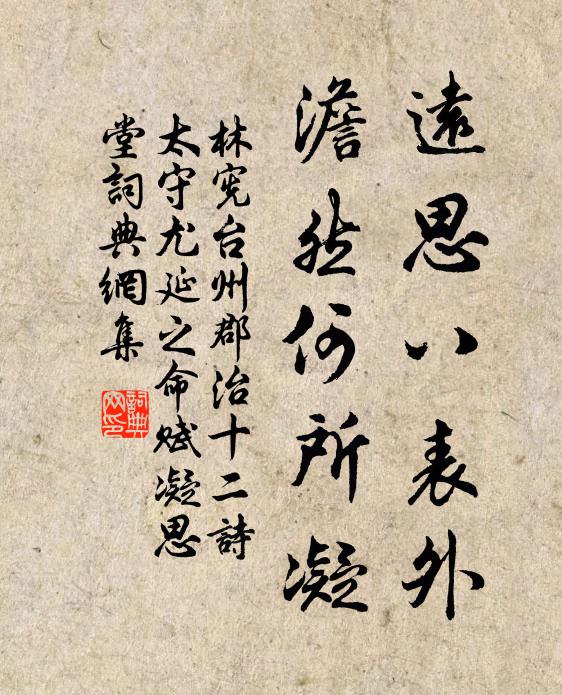 遠思八表外
澹然何所凝
林憲台州郡治十二詩
太守尤延之命賦凝思
堂詞典網集
詞典
网印